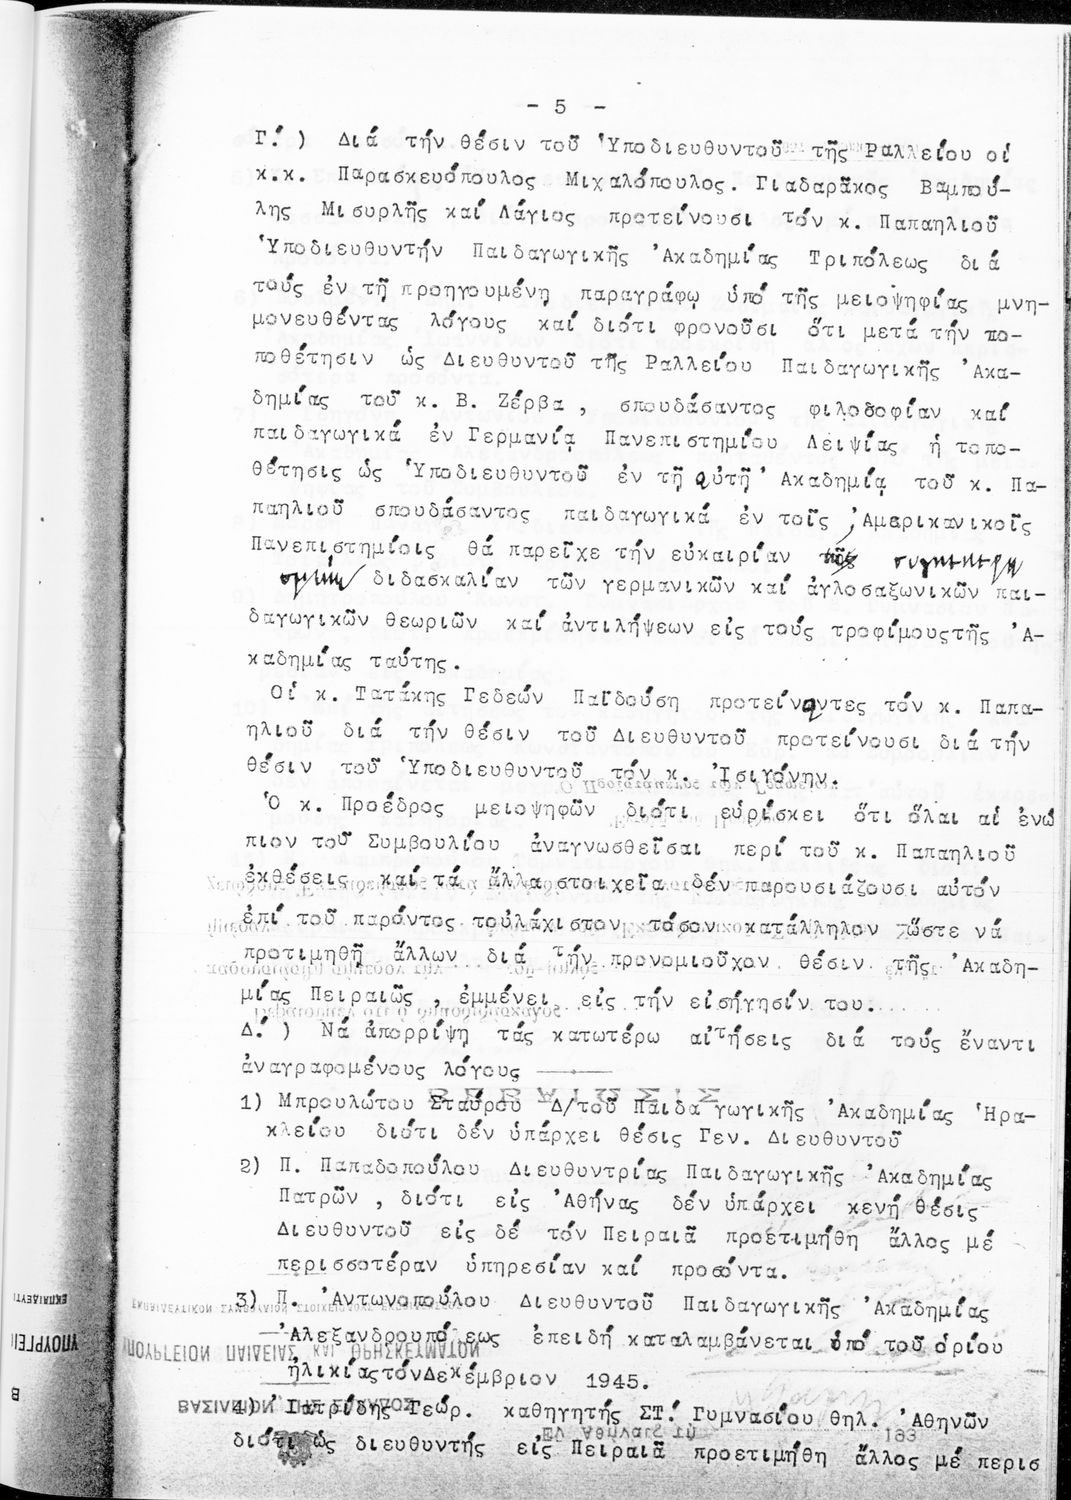 - 5 -
Γ΄.) Διά τήν θέσιν τοῦ Ὑποδιευθυντοῦ τῆς Ραλλείου οἱ
κ.κ. Παρασκευόπουλος Μιχαλόπουλος. Γιαδαρᾶκος Βαμπού-
λης Μισυρλῆς καί Λάγιος προτείνουσι τόν κ. Παπαηλιοῦ
Ὑποδιευθυντήν Παιδαγωγικῆς Ἀκαδημίας Τριπόλεως διά
τούς ἐν τῇ προηγουμένῃ παραγράφῳ ὑπό τῆς μειοψηφίας μνη-
μονευθέντας λόγους καί διότι φρονοῦσι ὅτι μετά τήν πο-
ποθέτησιν ὡς Διευθυντοῦ τῆς Ραλλείου Παιδαγωγικῆς Ἀκα-
δημίας τοῦ κ. Β. Ζέρβα , σπουδάσαντος φιλοσοφίαν καί
παιδαγωγικά ἐν Γερμανίᾳ Πανεπιστημίου Λειψίας ἡ τοπο-
θέτησις ὡς Ὑποδιευθυντοῦ ἐν τῇ αὐτῇ Ἀκαδημίᾳ τοῦ κ. Πα-
παηλιοῦ σπουδάσαντος παιδαγωγικά ἐν τοῖς Ἀμερικανικοῖς
Πανεπιστημίοις θά παρεῖχε τήν εὐκαιρίαν
διδασκαλίαν τῶν γερμανικῶν καί ἀγλοσαξωνικῶν παι-
δαγωγικῶν θεωριῶν καί ἀντιλήψεων εἰς τούς τροφίμουςτῆς Ἀ-
καδημίας ταύτης.
Οἱ κ. Τατάκης Γεδεών Παϊδούση προτείναντες τόν κ. Παπα-
ηλιοῦ διά τήν θέσιν τοῦ Διευθυντοῦ προτείνουσι διά τήν
θέσιν τοῦ Ὑποδιευθυντοῦ τόν κ. Ἰσιγόνην.
Ὁ κ. Προέδρος μειοψηφῶν διότι εὑρίσκει ὅτι ὅλαι αἱ ἐνώ
πιον τοῦ Συμβουλίου ἀναγνωσθεῖσαι περί τοῦ κ. Παπαηλιοῦ
ἐκθέσεις καί τά ἄλλα στοιχεῖα δέν παρουσιάζουσι αὐτόν
ἐπί τοῦ παρόντος τοὐλάχιστον τόσον κατάλληλον ὥστε νά
προτιμηθῇ ἄλλων διά τήν προνομιοῦχον θέσιν τῆς Ἀκαδη-
μίας Πειραιῶς , ἐμμένει εἰς τήν εἰσήγησίν του.
Δ΄.) Νά ἀπορρίψῃ τάς κατωτέρω αἰτήσεις διά τούς ἔναντι
ἀναγραφομένους λόγους
1) Μπρουλώτου Σταύρου Δ/τοῦ Παιδαγωγικῆς Ἀκαδημίας Ἡρα-
κλείου διότι δέν ὑπάρχει θέσις Γεν. Διευθυντοῦ
2) Π. Παπαδοπούλου Διευθυντρίας Παιδαγωγικῆς Ἀκαδημίας
Πατρῶν , διότι εἰς Ἀθήνας δέν ὑπάρχει κενή θέσις
Διευθυντοῦ εἰς δέ τόν Πειραιᾶ προετιμήθη ἄλλος μέ
περισσοτέραν ὑπηρεσίαν καί προσόντα.
3) Π. Ἀντωνοπούλου Διευθυντοῦ Παιδαγωγικῆς Ἀκαδημίας
Ἀλεξανδρουπό εως ἐπειδή καταλαμβάνεται ὑπό τοῦ ὁρίου
ἡλικίαςτόνΔεκέμβριον 1945.
4) Ἰατρίδης Γεώρ. καθηγητής ΣΤ΄. Γυμνασίου θηλ. Ἀθηνῶν
διότι ὡς διευθυντής εἰς Πειραιᾶ προετιμήθη ἄλλος μέ περισ